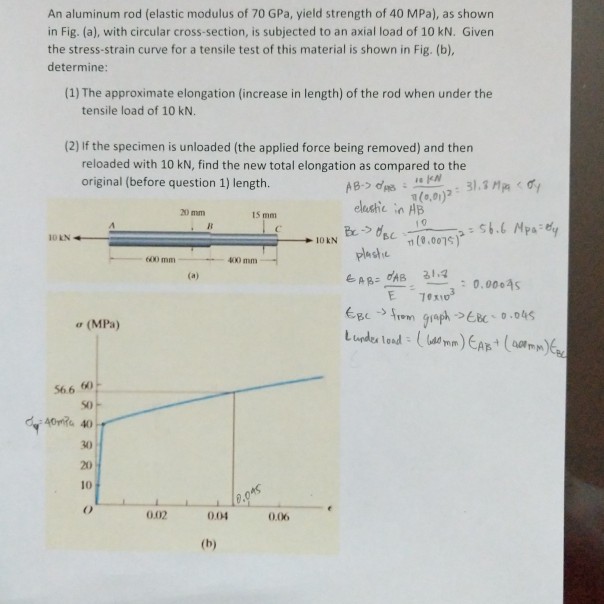 An aluminum rod (elastic modulus of 70 GPa, yield strength of 40 MPa), as shown
in Fig. (a), with circular cross-section, is subjected to an axial load of 10 kN. Given
the stress-strain curve for a tensile test of this material is shown in Fig. (b),
determine:
(1) The approximate elongation (increase in length) of the rod when under the
tensile load of 10 kN.
(2) If the specimen is unloaded (the applied force being removed) and then
reloaded with 10 kN, find the new total elongation as compared to the
original (before question 1) length.
AB-> σAB = 10 kN / π(0.01)² = 31.8 Mpa < σy
elastic in AB
BC-> σBC = 10 / π(0.0075)² = 56.6 Mpa = σy
plastic
εAB = σAB / E = 31.8 / 70x10³ = 0.00045
εBC -> from graph -> εBC = 0.045
L under load = (600mm) εAB + (400mm) εBC
20 mm
15 mm
A
B
C
10 kN
10 kN
600 mm
400 mm
(a)
σ (MPa)
56.6
60
50
σy=40mPa
40
30
20
10
O
0.045
0.02
0.04
0.06
ϵ
(b)